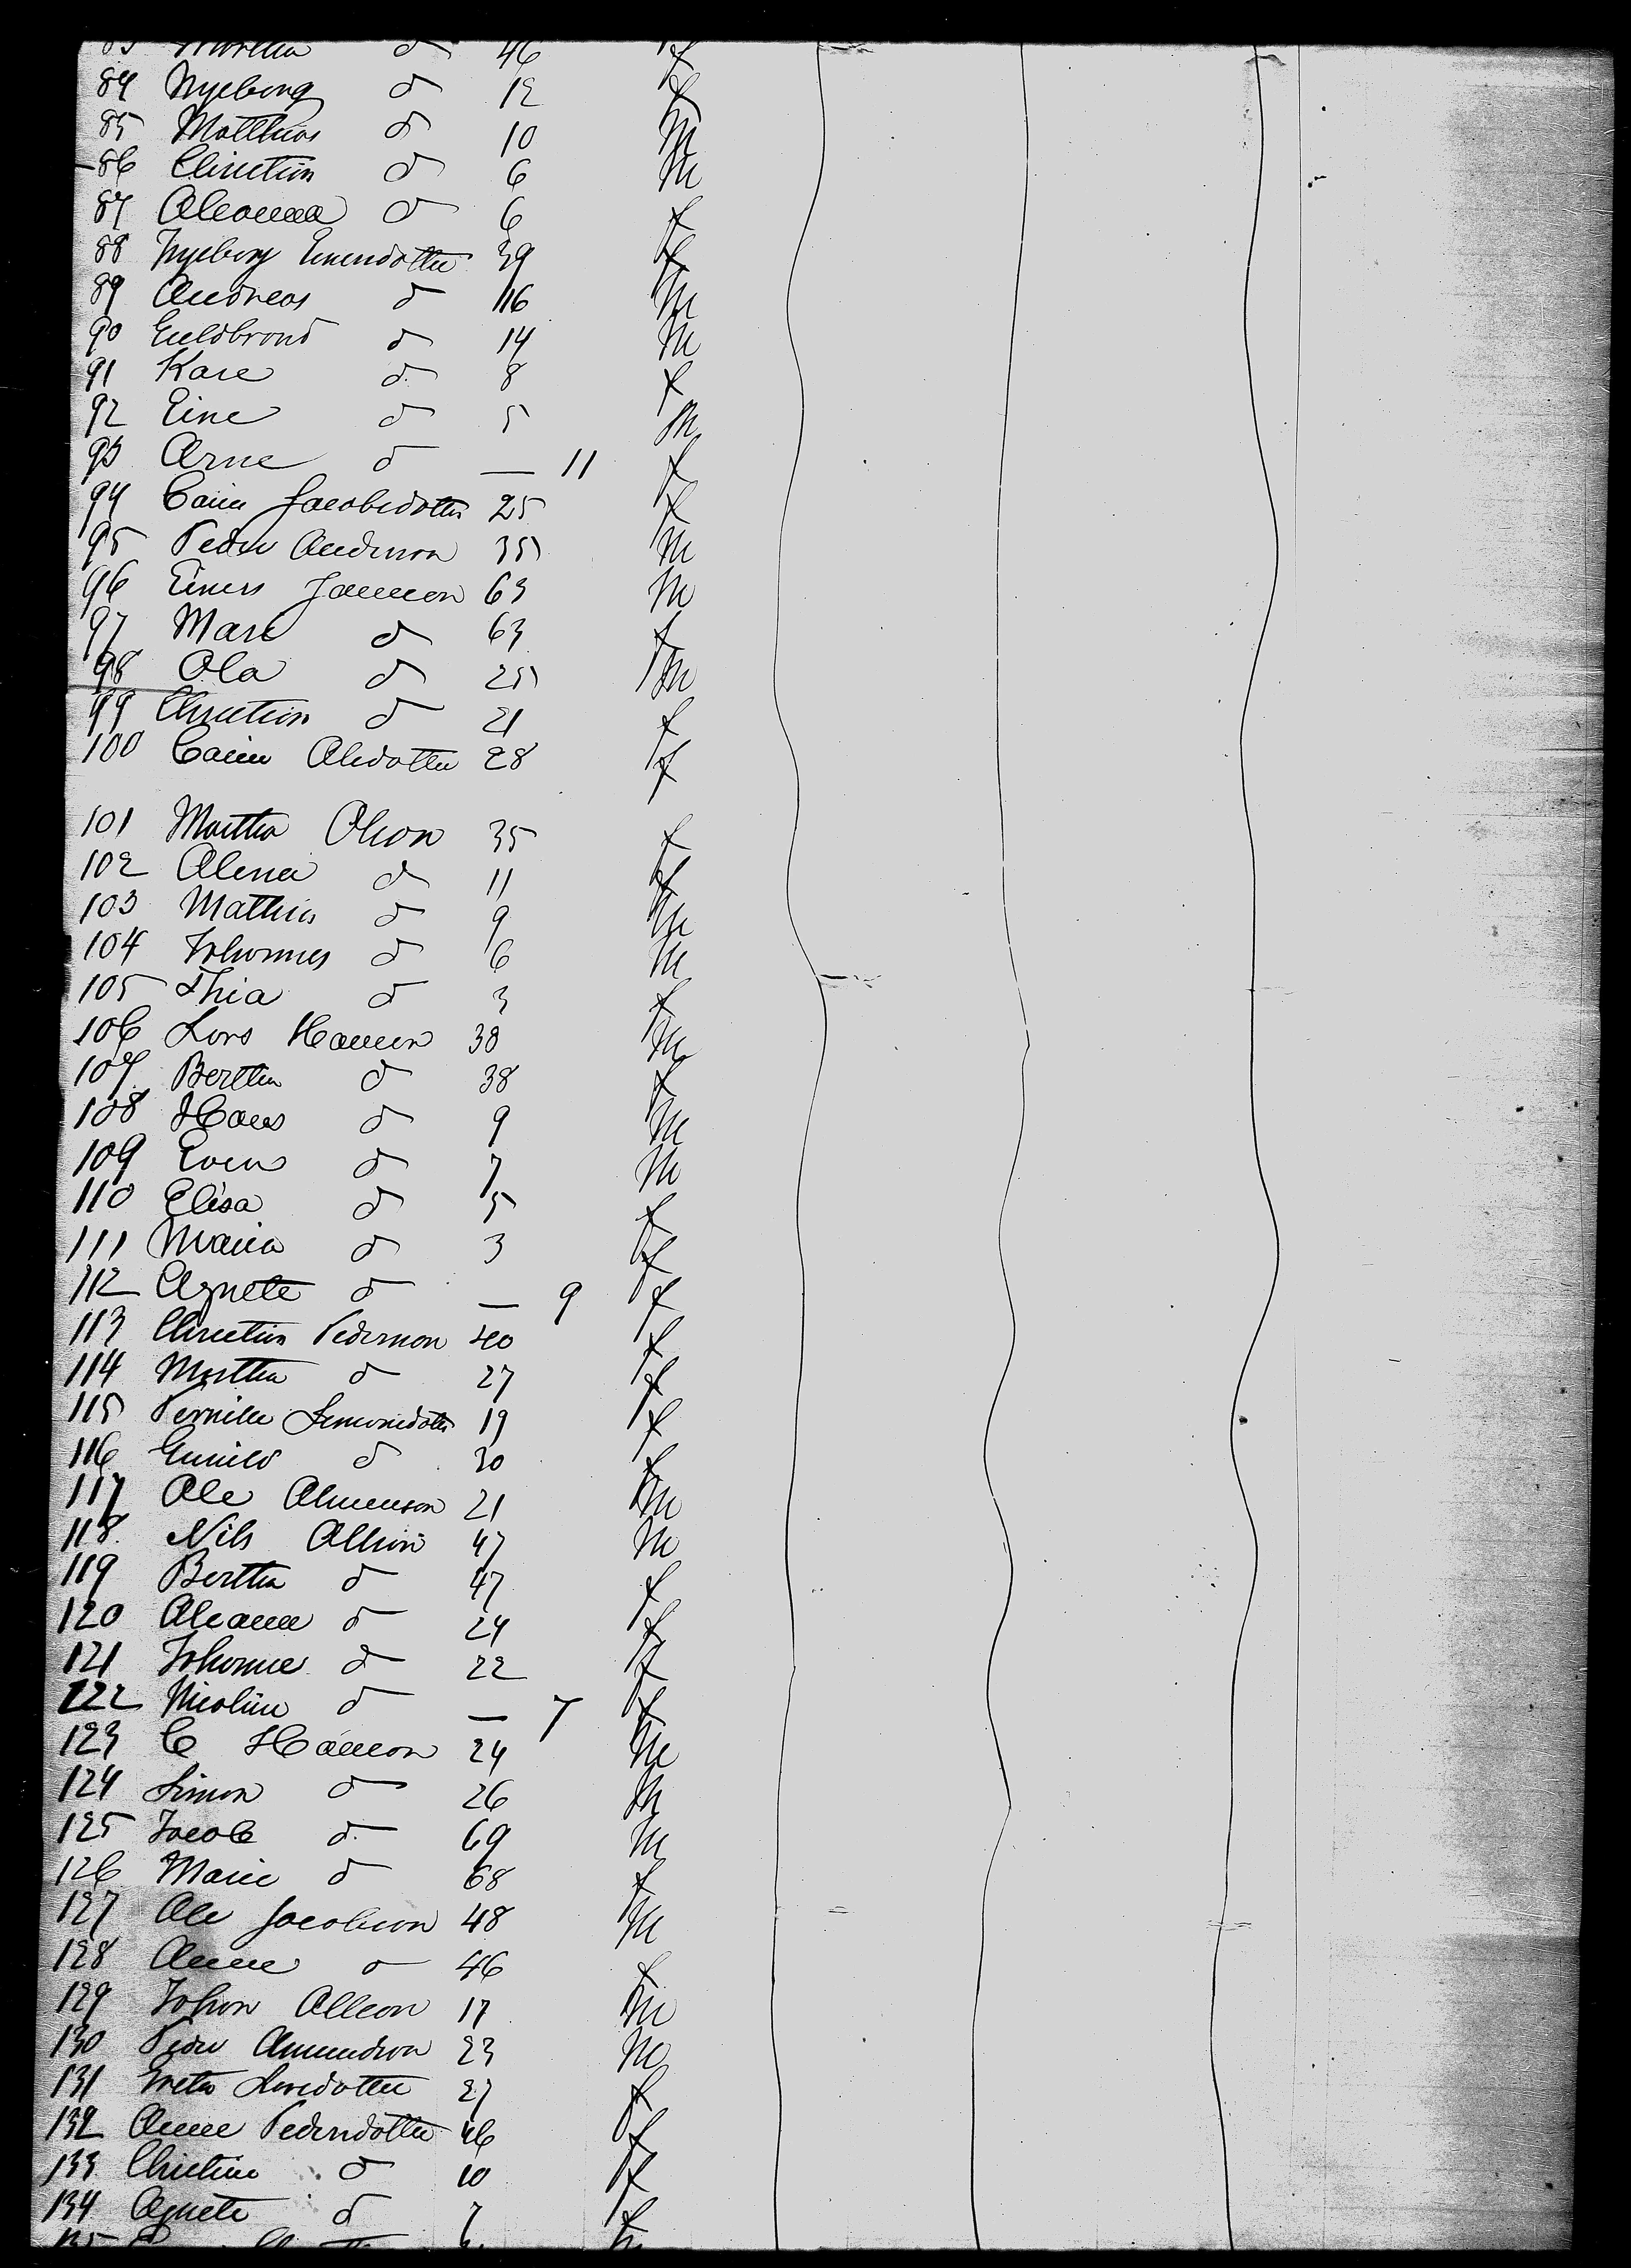 83 Martha d 46 f
84 Ingeborg d 12 f
85 Matthias d 10 m
86 Christian d 6 m
87 Oleanna d 6 f
88 Ingeborg Einersdotter 39 f
89 Andreas d 16 m
90 Guldbrand d 14 m
91 Kare d 8 f
92 Eine d 5 m
93 Arne d — 11 f
94 Carin Jacobsdotter 25 f
95 Peder Anderson 35 m
96 Einers Jansson 63 m
97 Mari d 63 f
98 Ola d 25 m
99 Christion d 21 f
100 Carin Olsdotter 28 f
101 Martha Olson 35 f
102 Olena d 11 f
103 Mathias d 9 m
104 Johannes d 6 m
105 Thia d 3 f
106 Lars Hansen 38 m
107 Bertha d 38 f
108 Hans d 9 m
109 Even d 7 m
110 Elisa d 5 f
111 Maria d 3 f
112 Agnete d — 9 f
113 Christian Pederson 40 f
114 Martha d 27 f
115 Pernille Simonsdotter 19 f
116 Gunild d 30 f
117 Ole 21 m
118 Nils Olson 47 m
119 Bertha d 47 f
120 Oleanne d 24 f
121 Johanne d 22 f
122 Nicoline d — 7 f
123 C Hanson 24 m
124 Simon d 26 m
125 Jacob d 69 m
126 Marie d 68 f
127 Ole Jacobson 48 m
128 Anne d 46 f
129 Johan Olleson 17 m
130 Peder Amundson 23 m
131 Greta Larsdotter 27 f
132 Anne Pedersdotter 46 f
133 Christine d 10 f
134 Agnete d 7 f
135